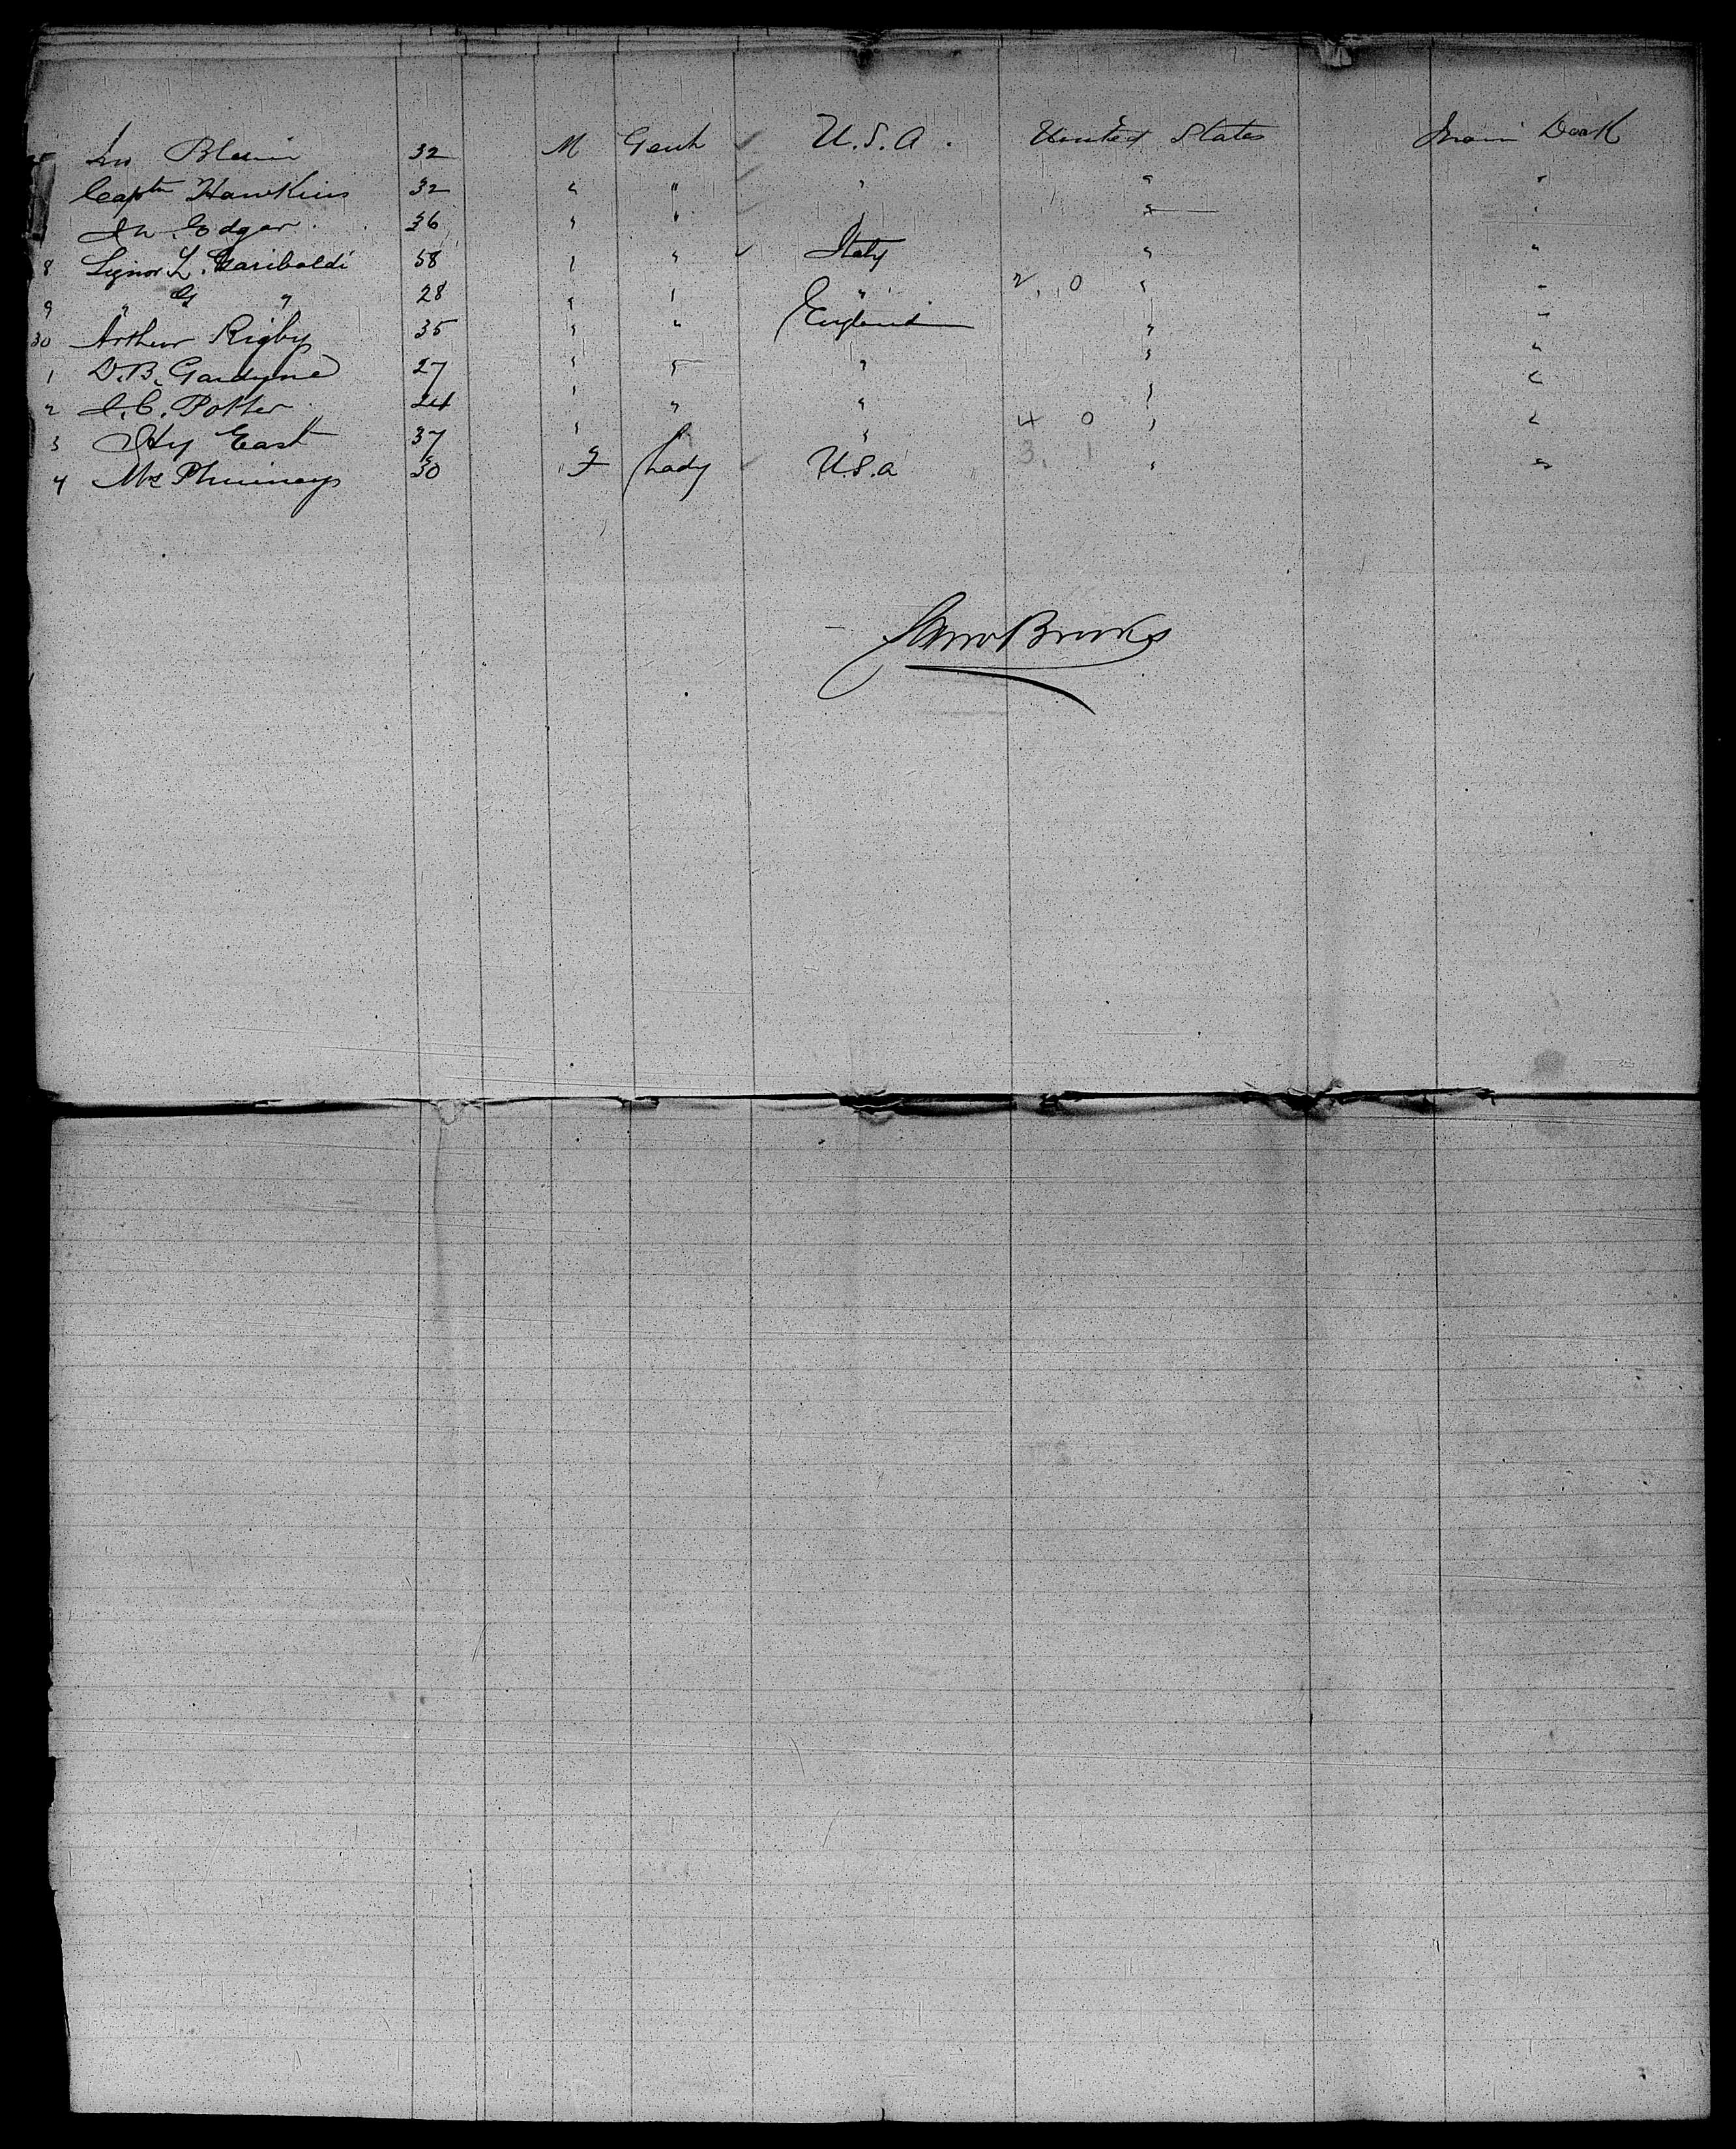 5 Jno Blain 32 M Gent U.S.A. United States Main Deck
Captn Hawkins 32 " " " " "
Edgar 36 " " " "
8 Signor L. Garibaldi 58 " " Italy " "
9 " G " 28 " " " 2. 0 " "
30 Arthur Rigby 35 " " England " "
1 D.B. Gardyne 27 " " " " "
2 J.C. Potter 24 " " " " "
3 Hy East 37 " " 4 0 " "
4 Mrs Phinney 30 F Lady U.S.a 3. 1 " "
Brooks